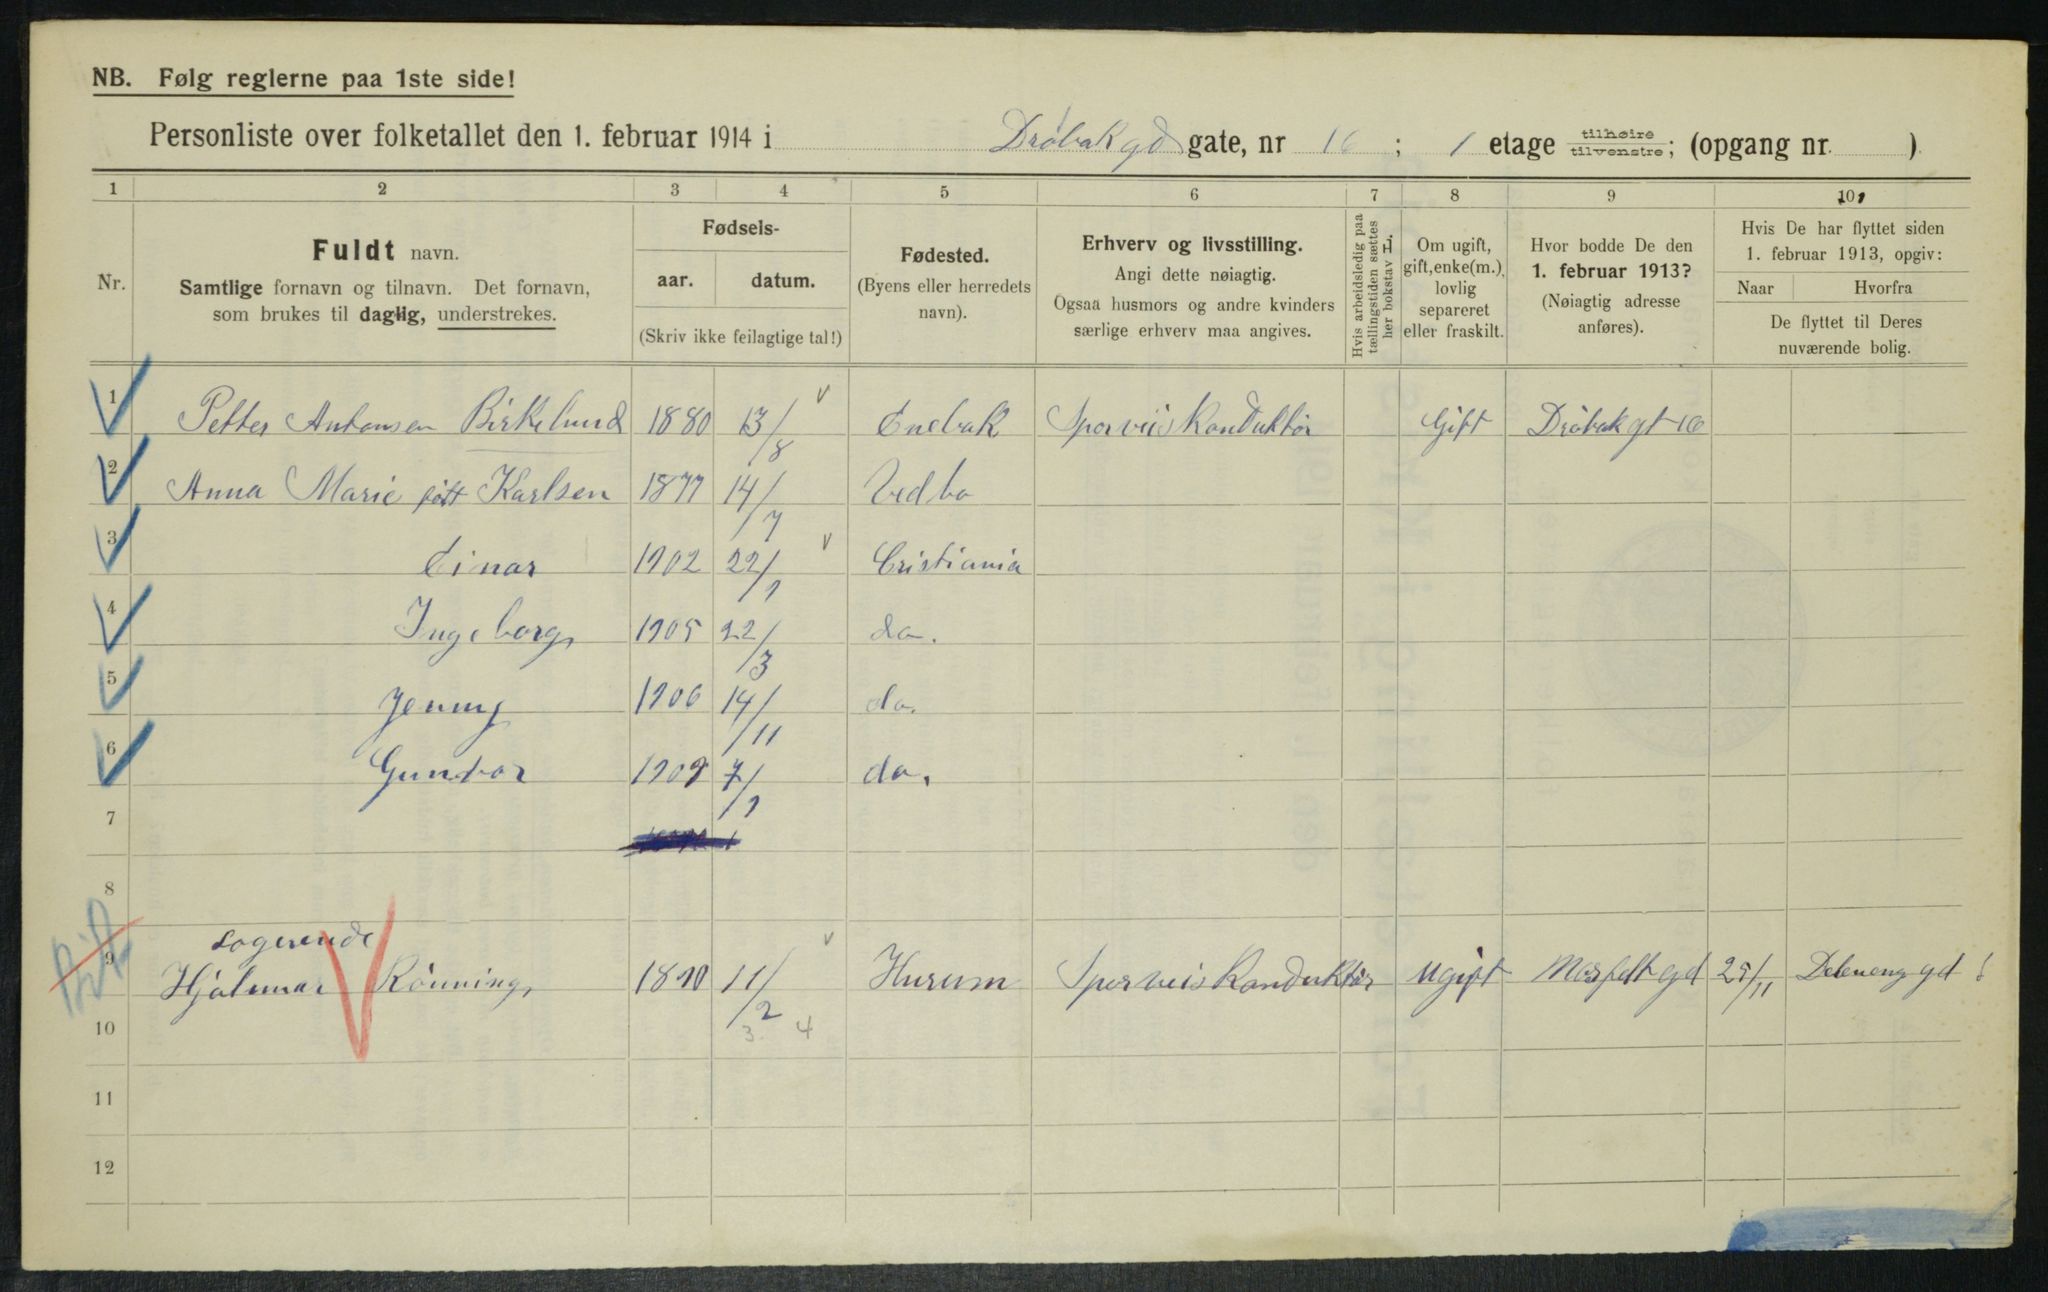 NB. Følg reglerne paa 1ste side!
Personliste over folketallet den 1. februar 1914 i Drøbak gd gate, nr 16 ; 1 etage tilhøire / tilvenstre ; (opgang nr. )
1 2 3 4 5 6 7 8 9 10
Nr.
Fuldt navn.
Samtlige fornavn og tilnavn. Det fornavn,
som brukes til daglig, understrekes.
Fødsels-
aar. datum.
(Skriv ikke feilagtige tal!)
Fødested.
(Byens eller herredets
navn).
Erhverv og livsstilling.
Angi dette nøiagtig.
Ogsaa husmors og andre kvinders
særlige erhverv maa angives.
Hvis arbeidsledig paa
tællingstiden sættes
her bokstav L.
Om ugift,
gift, enke(m.),
lovlig
separeret
eller fraskilt.
Hvor bodde De den
1. februar 1913?
(Nøiagtig adresse
anføres).
Hvis De har flyttet siden
1. februar 1913, opgiv:
Naar Hvorfra
De flyttet til Deres
nuværende bolig.
1 Petter Antonsen Birkelund 1880 13/8 Enebak Sporveiskonduktör Gift Dröbak gt 16
2 Anna Marie född Karlsen 1877 14/7 Vedbo
3 Einar 1902 22/1 Cristiania
4 Ingeborg 1905 22/3 do.
5 Jenny 1906 14/11 do.
6 Gunvor 1909 7/1 do.
7
8
Logerende
9 Hjalmar Rönning 1890 11/2 Hurum Sporveiskonduktör Ugift gd 25/11 gd
10 3. 4
11
12